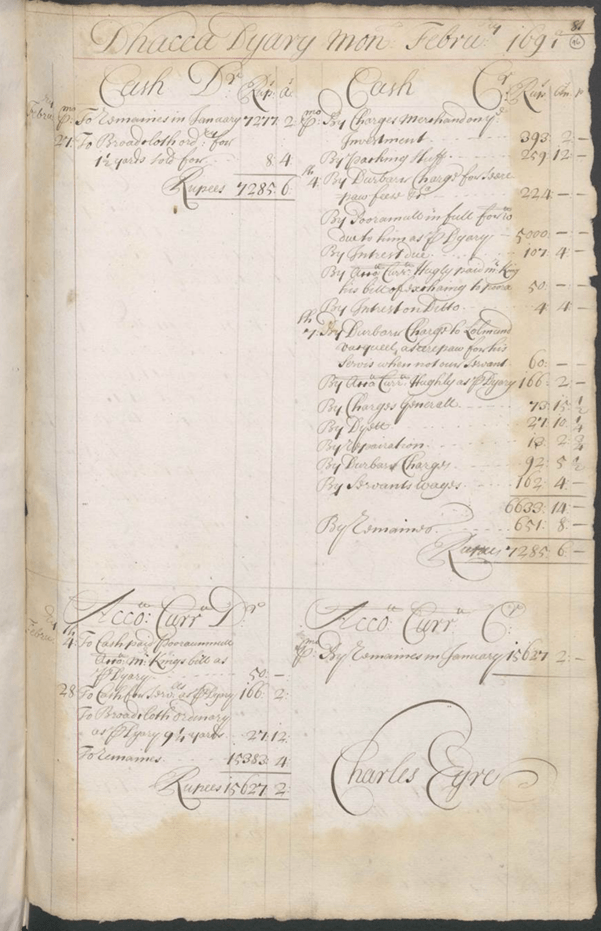 81
Dhacca Dyary Mon. Febru.ry 1691
Cash Dr Rups: a.
Febru: pmo To Remaines in January 7277 : 2
27: To Broadcloth ord: for
1½ yards sold for 8 : 4
Rupees 7285 : 6
Cash Cr Rups: An: p
pmo By Charges Merchand on ye
Investment 393 : 2 –
By packing stuff 259 : 12 –
4th By Durbarr Charge for
paw fees &ca 224 : – –
By Pooramull in full for
due to him as P Dyary 5000 : – –
By Intrest due 107 : 4 –
By Acco Curr Hugly paid Mr King
his bill of exchaing to 50 : – –
By Intrest on Ditto 4 : 4 –
7th By Durbarr Charge to
for his
Servis when not our Servant 60 : – –
By Acco Curr Hughly as P Dyary 166 : 2 –
By Charges Generall 73 : 15 ½
By Dyett 27 : 10 ¼
By Repairation 2
By Durbarr Charges 92 : 5 ½
By Servants Wages 162 : 4 –
6633 : 14 –
By Remaines 651 : 8 –
Rupees 7285 : 6 –
Acco: Curr Dr
Febru: 4th To Cash paid Pooraumull
Acco: Mr Kings bill as
P Dyary 50 : –
28 To Cash for as P Dyary 166 : 2
To Broadcloth Ordinary
as P Dyary 9¼ yards 27 : 12
To remaines 15383 : 4
Rupees 15627 : 2
Acco: Curr Cr
pmo By Remaines in January 15627 : 2 –
Charles Eyre